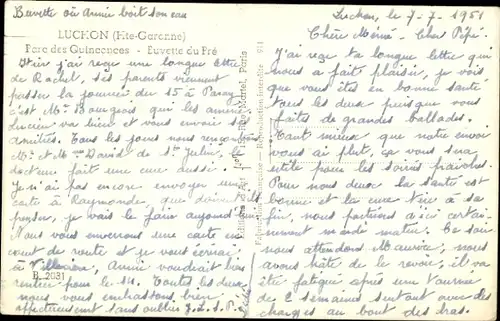 Buvette où Annie boit son eau
LUCHON (Hte-Garonne)
Parc des Quinconces - Buvette du Pré
Hier j'ai reçu une longue lettre
de Rachel, ses parents viennent
passer la journée du 15 à Paray
c'est Mr Bourgeois qui les amène
Lucien va bien et vous envoie ses
amitiés. Tous les jours nous rencontrons
Mr et Mme David de St Julien, le
doct un fait une cure aussi.
Je n'ai pas encore envoyer une
carte à Raymonde, que va-t-elle
penser, je vais le faire aujourd'hui
Nous vous enverrons une carte en
cout de route et vous
à Villevieux, Annie voudrait bien
rentrer pour le 14. Toutes les deux
B. 2031
nous vous embrassons bien
affectueusement sans oublier
Luchon le 7-7-1951
Chère Mémé - Cher Pépé
J'ai reçu ta longue lettre qui
nous a fait plaisir, je vois
que vous êtes en bonne santé
tous les deux puisque vous
faites de grandes ballades.
Tant mieux que notre envoi
vous ai plut, ça vous sera
utile pour les soirées fraîches
Pour nous deux la santé est
bonne et la cure tire à sa
fin, nous partirons d'ici certai-
nement mardi matin. Ce soir
nous attendons Maurice, nous
avons hâte de le revoir, il va
être fatigué après une tournée
de 2 semaines surtout avec des
charges au bout des bras.
Reproduction Interdite